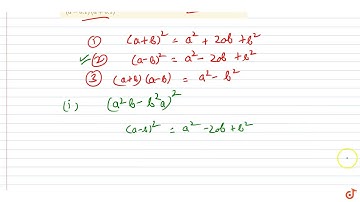 ① (a+b)² = a² + 2ab + b²
✓② (a-b)² = a² - 2ab + b²
③ (a+b)(a-b) = a² - b²
(i) (a²b - b²a)²
(a-b)² = a² - 2ab + b²